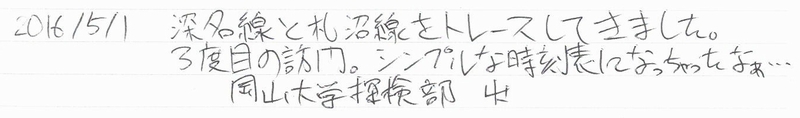 2016/5/1 深名線と札沼線をトレースしてきました。
3度目の訪問。シンプルな時刻表になっちゃったなぁ…
岡山大学探検部